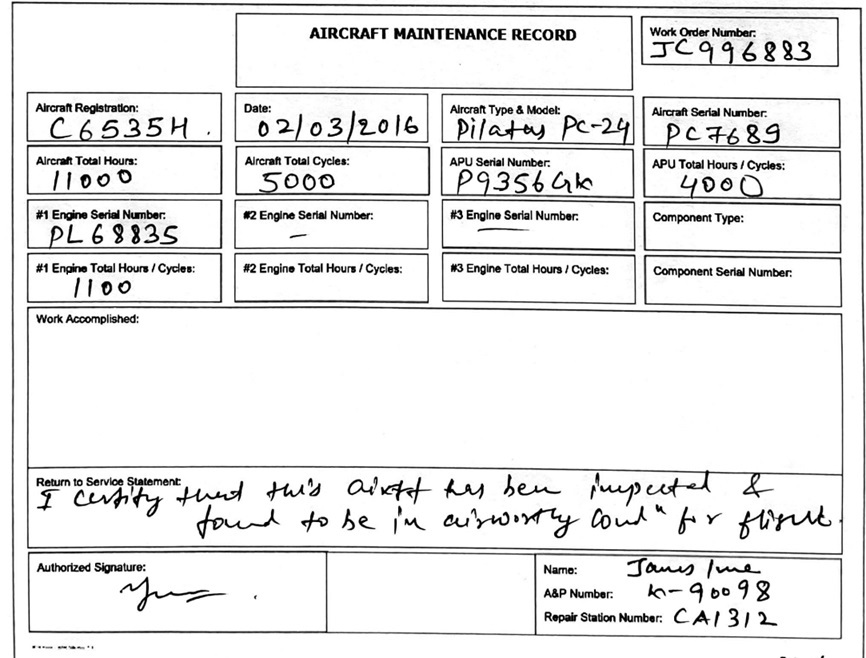 AIRCRAFT MAINTENANCE RECORD
Work Order Number:
JC996883
Aircraft Registration:
C6535H.
Date:
02/03/2016
Aircraft Type & Model:
Pilatus PC-24
Aircraft Serial Number:
PC7689
Aircraft Total Hours:
11000
Aircraft Total Cycles:
5000
APU Serial Number:
P9356GK
APU Total Hours / Cycles:
4000
#1 Engine Serial Number:
PL68835
#2 Engine Serial Number:
—
#3 Engine Serial Number:
—
Component Type:
#1 Engine Total Hours / Cycles:
1100
#2 Engine Total Hours / Cycles:
#3 Engine Total Hours / Cycles:
Component Serial Number:
Work Accomplished:
Return to Service Statement:
I certify that this aircft has been inspected &
found to be in airworthy condn for flight.
Authorized Signature:
Name: James
A&P Number: K-90098
Repair Station Number: CA1312